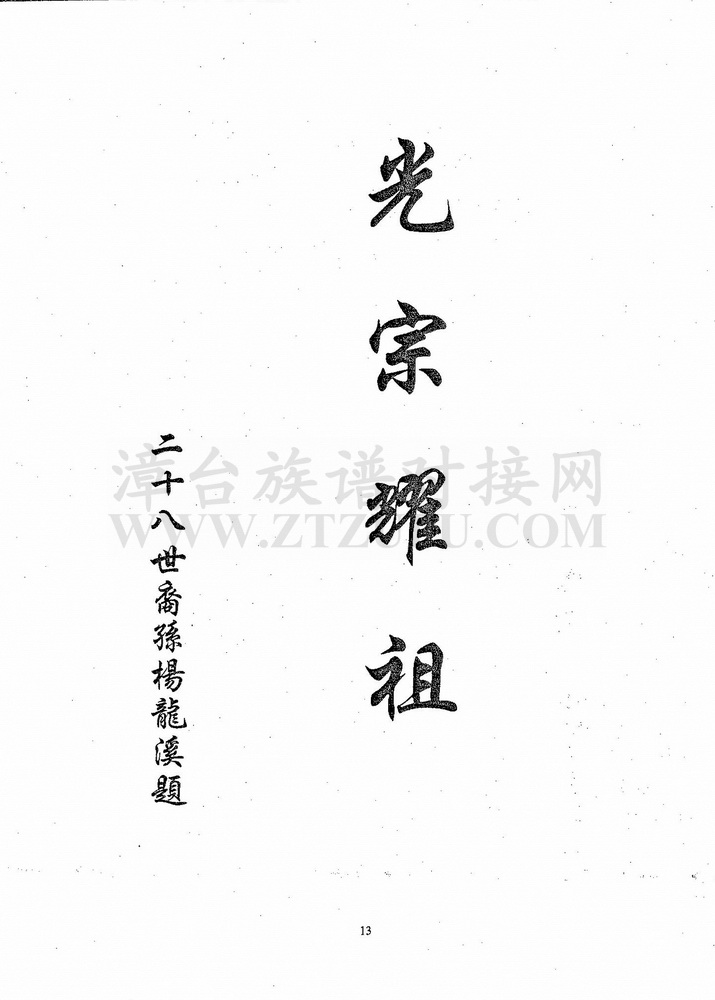 光宗耀祖
二十八世裔孫楊龍溪題
漳台族谱对接网
WWW.ZTZUPU.COM
13